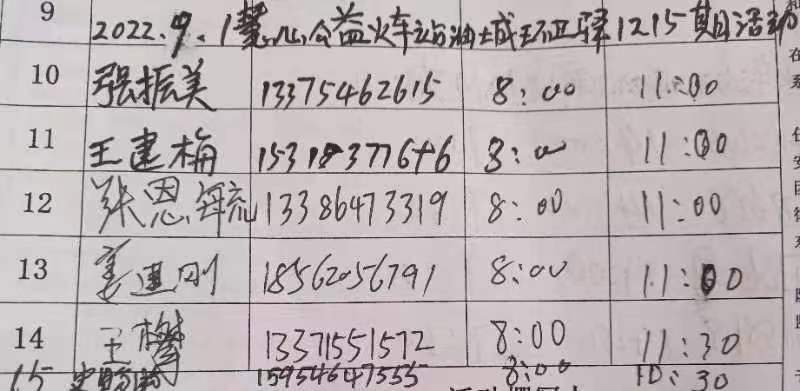 9 2022.9.1慧心公益火车站油城环卫驿1215期活动
10 张振美 13375462615 8:00 11:00
11 王建梅 8:00 11:00
12 张恩 13386473319 8:00 11:00
13 姜建刚 18562056791 8:00 11:00
14 王 13371551572 8:00 11:30
15 15954647555 8:00 10:30